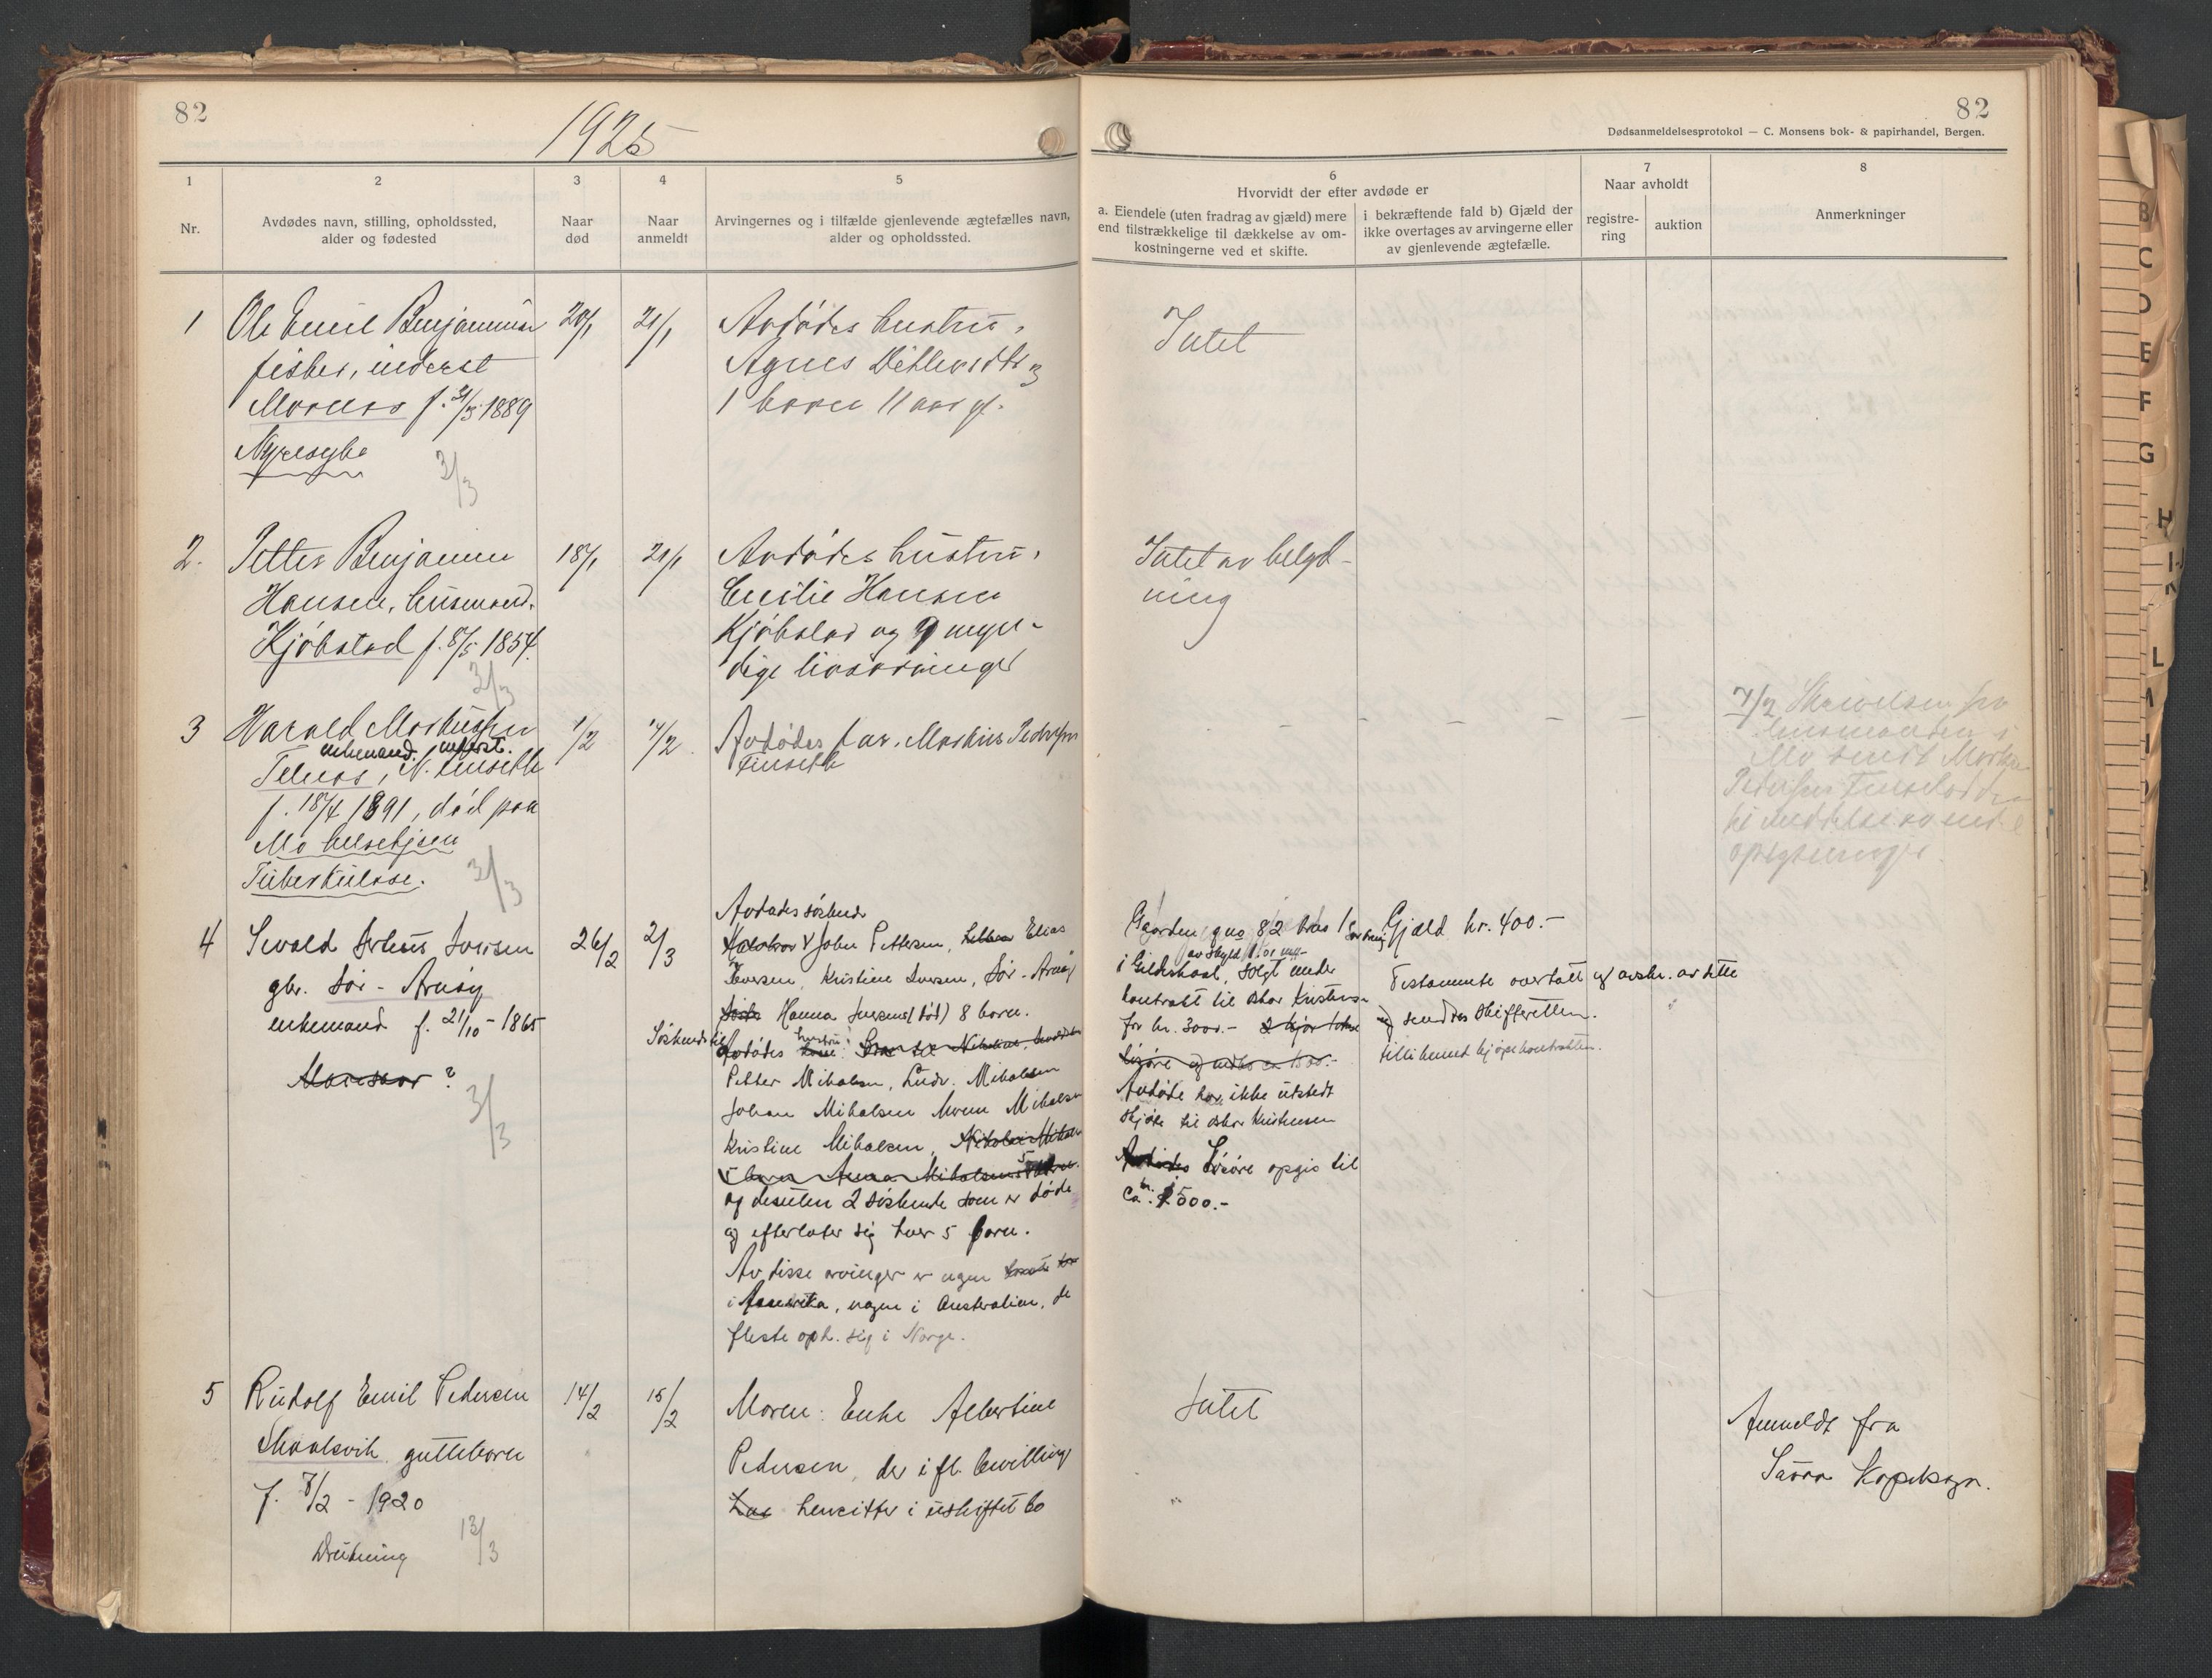 82
1925
82
Dødsanmeldelsesprotokol — C. Monsens bok- & papirhandel, Bergen.
1
Nr.
2
Avdødes navn, stilling, opholdssted,
alder og fødested
3
Naar
død
4
Naar
anmeldt
5
Arvingernes og i tilfælde gjenlevende ægtefælles navn,
alder og opholdssted.
6
Hvorvidt der efter avdøde er
a. Eiendele (uten fradrag av gjæld) mere
end tilstrækkelige til dækkelse av om-
kostningerne ved et skifte.
i bekræftende fald b) Gjæld der
ikke overtages av arvingerne eller
av gjenlevende ægtefælle.
7
Naar avholdt
registre-
ring
auktion
8
Anmerkninger
1
Ole Emil Benjaminsen
fisker, inderst
f. 21/3 1889
Nyresyke
3/3
20/1
21/1
Avdødes hustru,
Agnes
1 barn 11 aar gl.
Intet
2.
Petter Benjamin
Hansen, husmand.
Kjøbstad f. 8/5 1854.
3/3
18/1
21/1
Avdødes hustru,
Cecilie Hansen
Kjøbstad og 9 myn-
dige livsarvinger
Intet av betyd-
ning
3
Harald
enkemand. inderst.
f. 18/4 1891, død paa
Mo helsehjem
Tuberkulose.
3/3
1/2
4/2
Avdødes far,
Finseth
7/2 Skrivelse fra
Mo
4
Iversen
gbr. Sør-Arnøy
enkemand f. 21/10-1865
?
3/3
26/2
2/3
Avdødes søskende
John Pettersen, Elias
Iversen, Kristine Iversen, Sør-Arnøy
Hanna Iversens (død) 8 barn.
Søskende til
Avdødes hustru:
Petter Mikalsen, Ludv. Mikalsen
Johan Mikalsen Mikalsen
Kristine Mikalsen,
og desuten 2 søskende som er døde
og efterlater sig hver 5 barn.
Av disse arvinger er nogen
i Amerika, nogen i Australien, de
fleste oph. sig i Norge.
Gaarden gno 82 bno 1
av skyld
i Gildeskaal, solgt under
kontrakt til Oskar Kristensen
for kr. 3000.-
Avdøde har ikke utstedt
skjøte til Oskar Kristensen
Løsøre opgis til
ca. kr. 500.-
Gjæld kr. 400.-
Testamente overtatt og avskr. av dette
sendes skifteretten.
tillikemed kjøpekontrakten.
5
Rudolf Emil Pedersen
Skaalsvik guttebarn
f. 8/2 - 1920
Drukning
13/3
14/2
15/2
Moren: Enke Albertine
Pedersen, der ifl. bevilling
har hensitter i uskiftet bo
Intet
Anmeldt fra